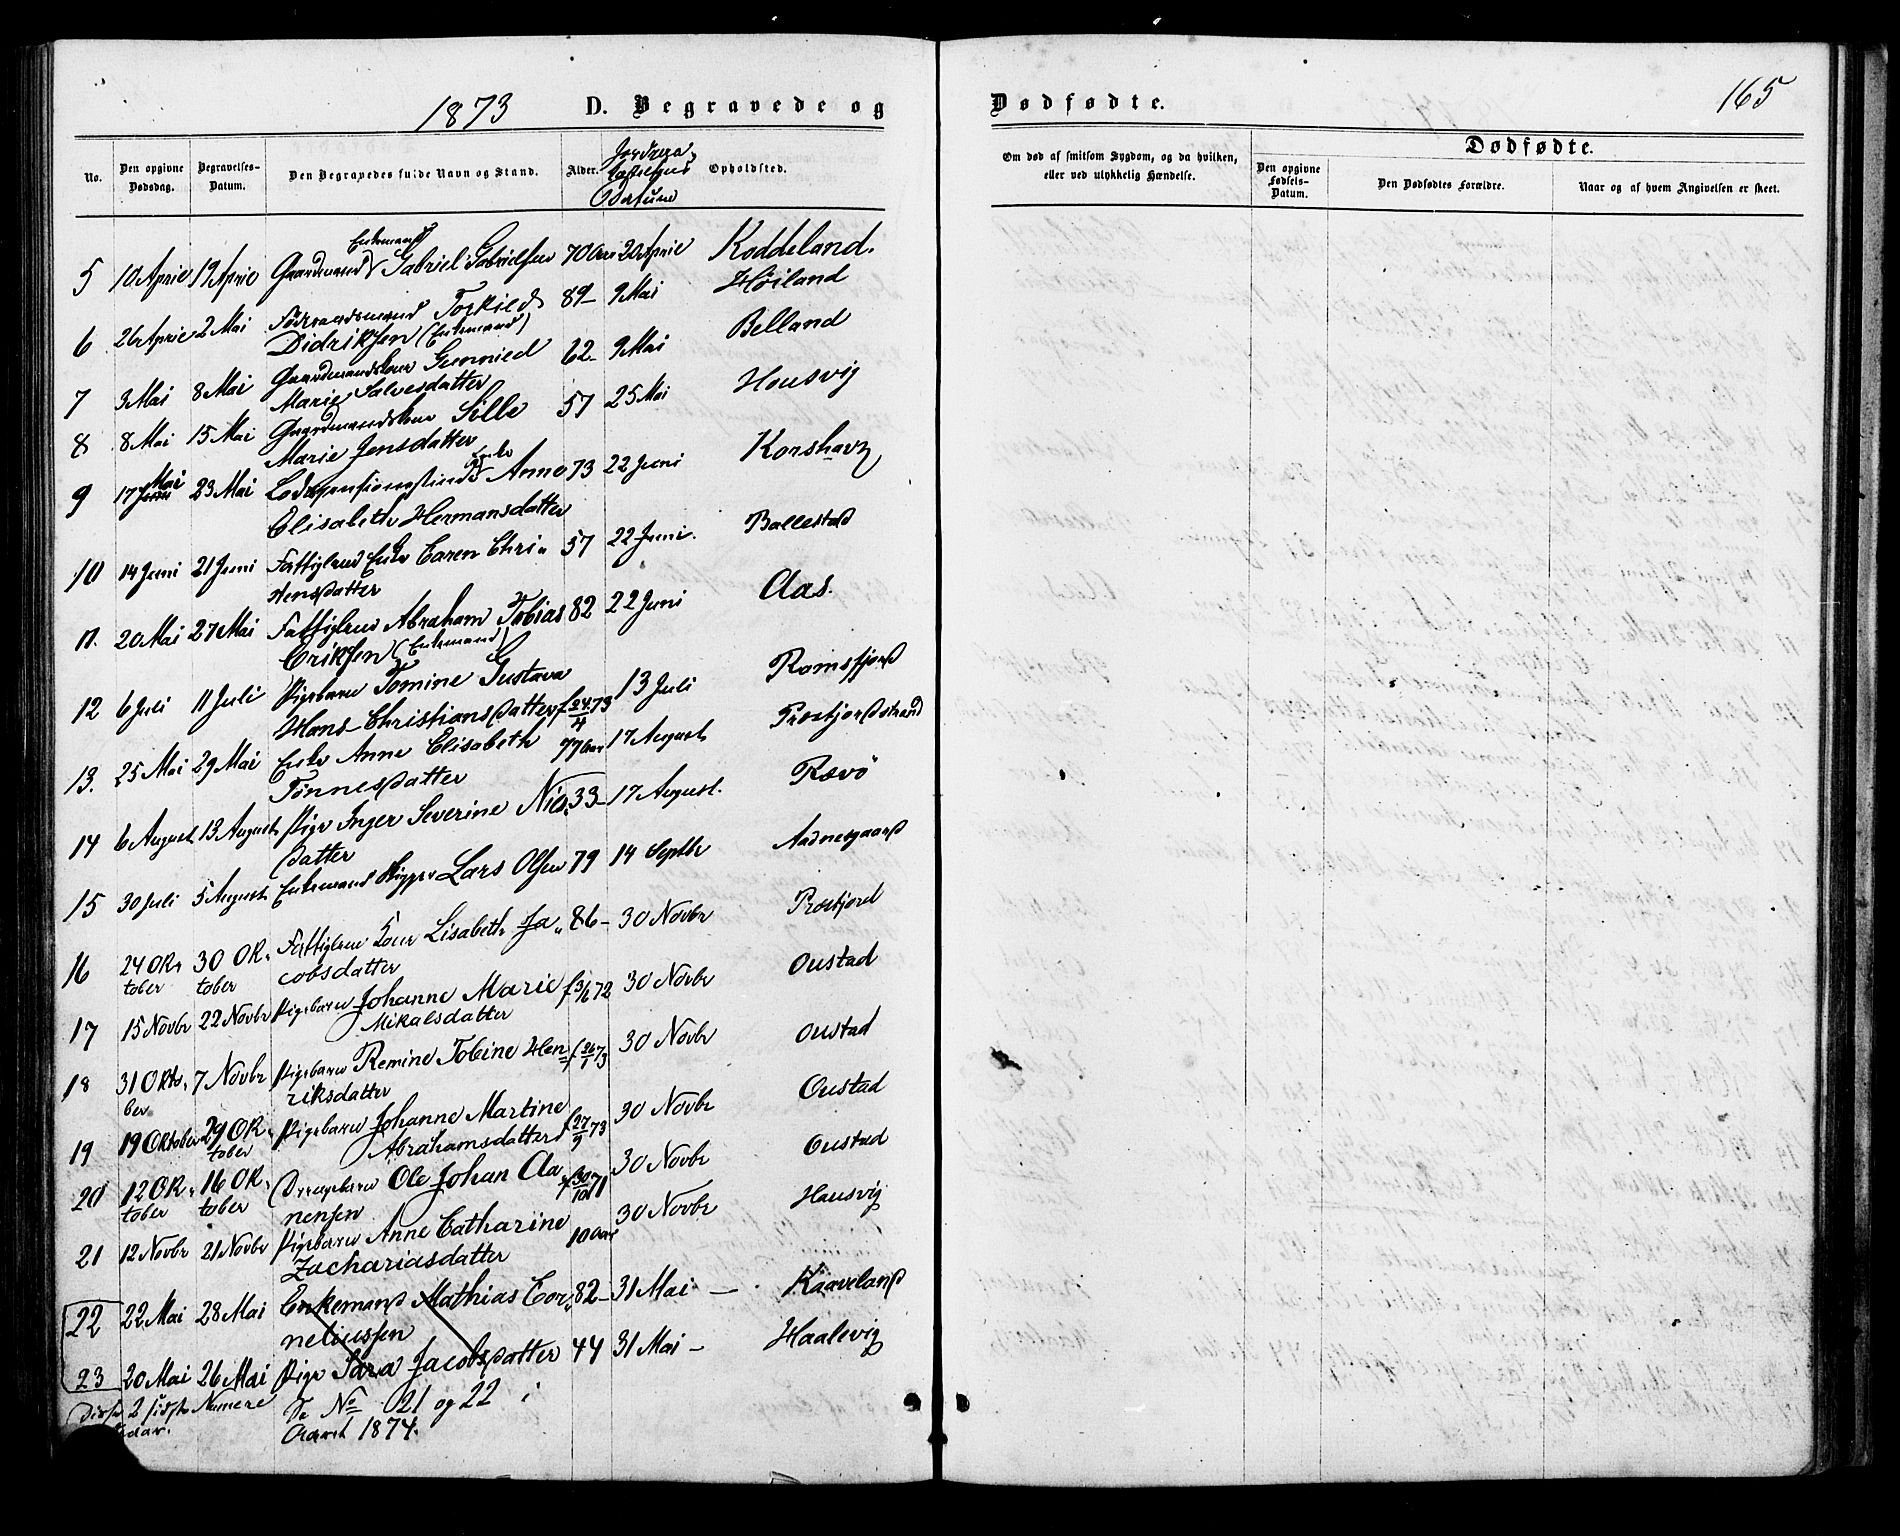 1873 D. Begravede og
Dødfødte. 165
No. Den opgivne Dødsdag. Begravelses-Datum. Den Begravedes fulde Navn og Stand. Alder. Jordpaa-kastelsens Datum Opholdsted.
Om død af smitsom Sygdom, og da hvilken, eller ved ulykkelig Hændelse. Dødfødte.
Den opgivne Fødsels-Datum. Den Dødfødtes Forældre. Naar og af hvem Angivelsen er skeet.
Enkemand
5 10 April 19 April Gaardmand Gabriel Gabrielsen 70 Aar 20 April Koddeland.
6 26 April 2 Mai Føderaadsmand Torkild 89 – 9 Mai Høiland
Didriksen (Enkemand)
7 3 Mai 8 Mai Gaardmandskone Gunnild 62 – 9 Mai Belland
Marie Salvesdatter
8 8 Mai 15 Mai Gaardmandskone Sille 57 25 Mai Housvig
Marie Jensdatter
9 17 Mai 23 Mai Enke Anne 73 22 Juni Korshavn
Elisabeth Hermansdatter
10 14 Juni 21 Juni Fattiglem Enke Caren Chri- 57 22 Juni. Ballestad
stensdatter
11. 20 Mai 27 Mai Fattiglem Abraham Tobias 82 22 Juni Aas.
Eriksen (Enkemand)
12 6 Juli 11 Juli Pigebarn Tomine Gustava 13 Juli Ramsfjord
Hans-Christiansdatter f 24/4 73
13. 25 Mai 29 Mai Enke Anne Elisabeth 77 Aar 17 August Præstfjordstrand
Tønnesdatter
14 6 August 13 August Pige Inger Severine Niels- 33 – 17 August. Rævø
datter
15 30 Juli 5 August Enkemand Skipper Lars Olsen 79 14 Septbr Aadnesgaard
16 24 Ok- 30 Ok- Fattiglem Kone Lisabeth Ja- 86 – 30 Novbr Præstfjord
tober tober cobsdatter
17 15 Novbr 22 Novbr Pigebarn Johanne Marie f 3/6 72 30 Novbr Oustad
Mikalsdatter
18 31 Okto- 7 Novbr Pigebarn Remine Tobine Hen- f 26/1 73 30 Novbr Oustad
ber riksdatter
19 19 Oktober 29 Ok- Pigebarn Johanne Martine 30 Novbr Oustad
tober Abrahamsdatter f 27/9 73
20 12 Ok- 16 Ok- Drengebarn Ole Johan Aa- f 30/10 71 30 Novbr Oustad
tober tober nensen
21 12 Novbr 21 Novbr Pigebarn Anne Catharine 10 Aar 30 Novbr Hausvig
Zachariasdatter
22 22 Mai 28 Mai Enkemand Mathias Cor- 82 – 31 Mai – Kaaveland
neliussen
23 20 Mai 26 Mai Pige Sara Jacobsdatter 44 31 Mai – Haalevig
Disse 2 sidste Numere Se No 21 og 22 i
Aaret 1874.